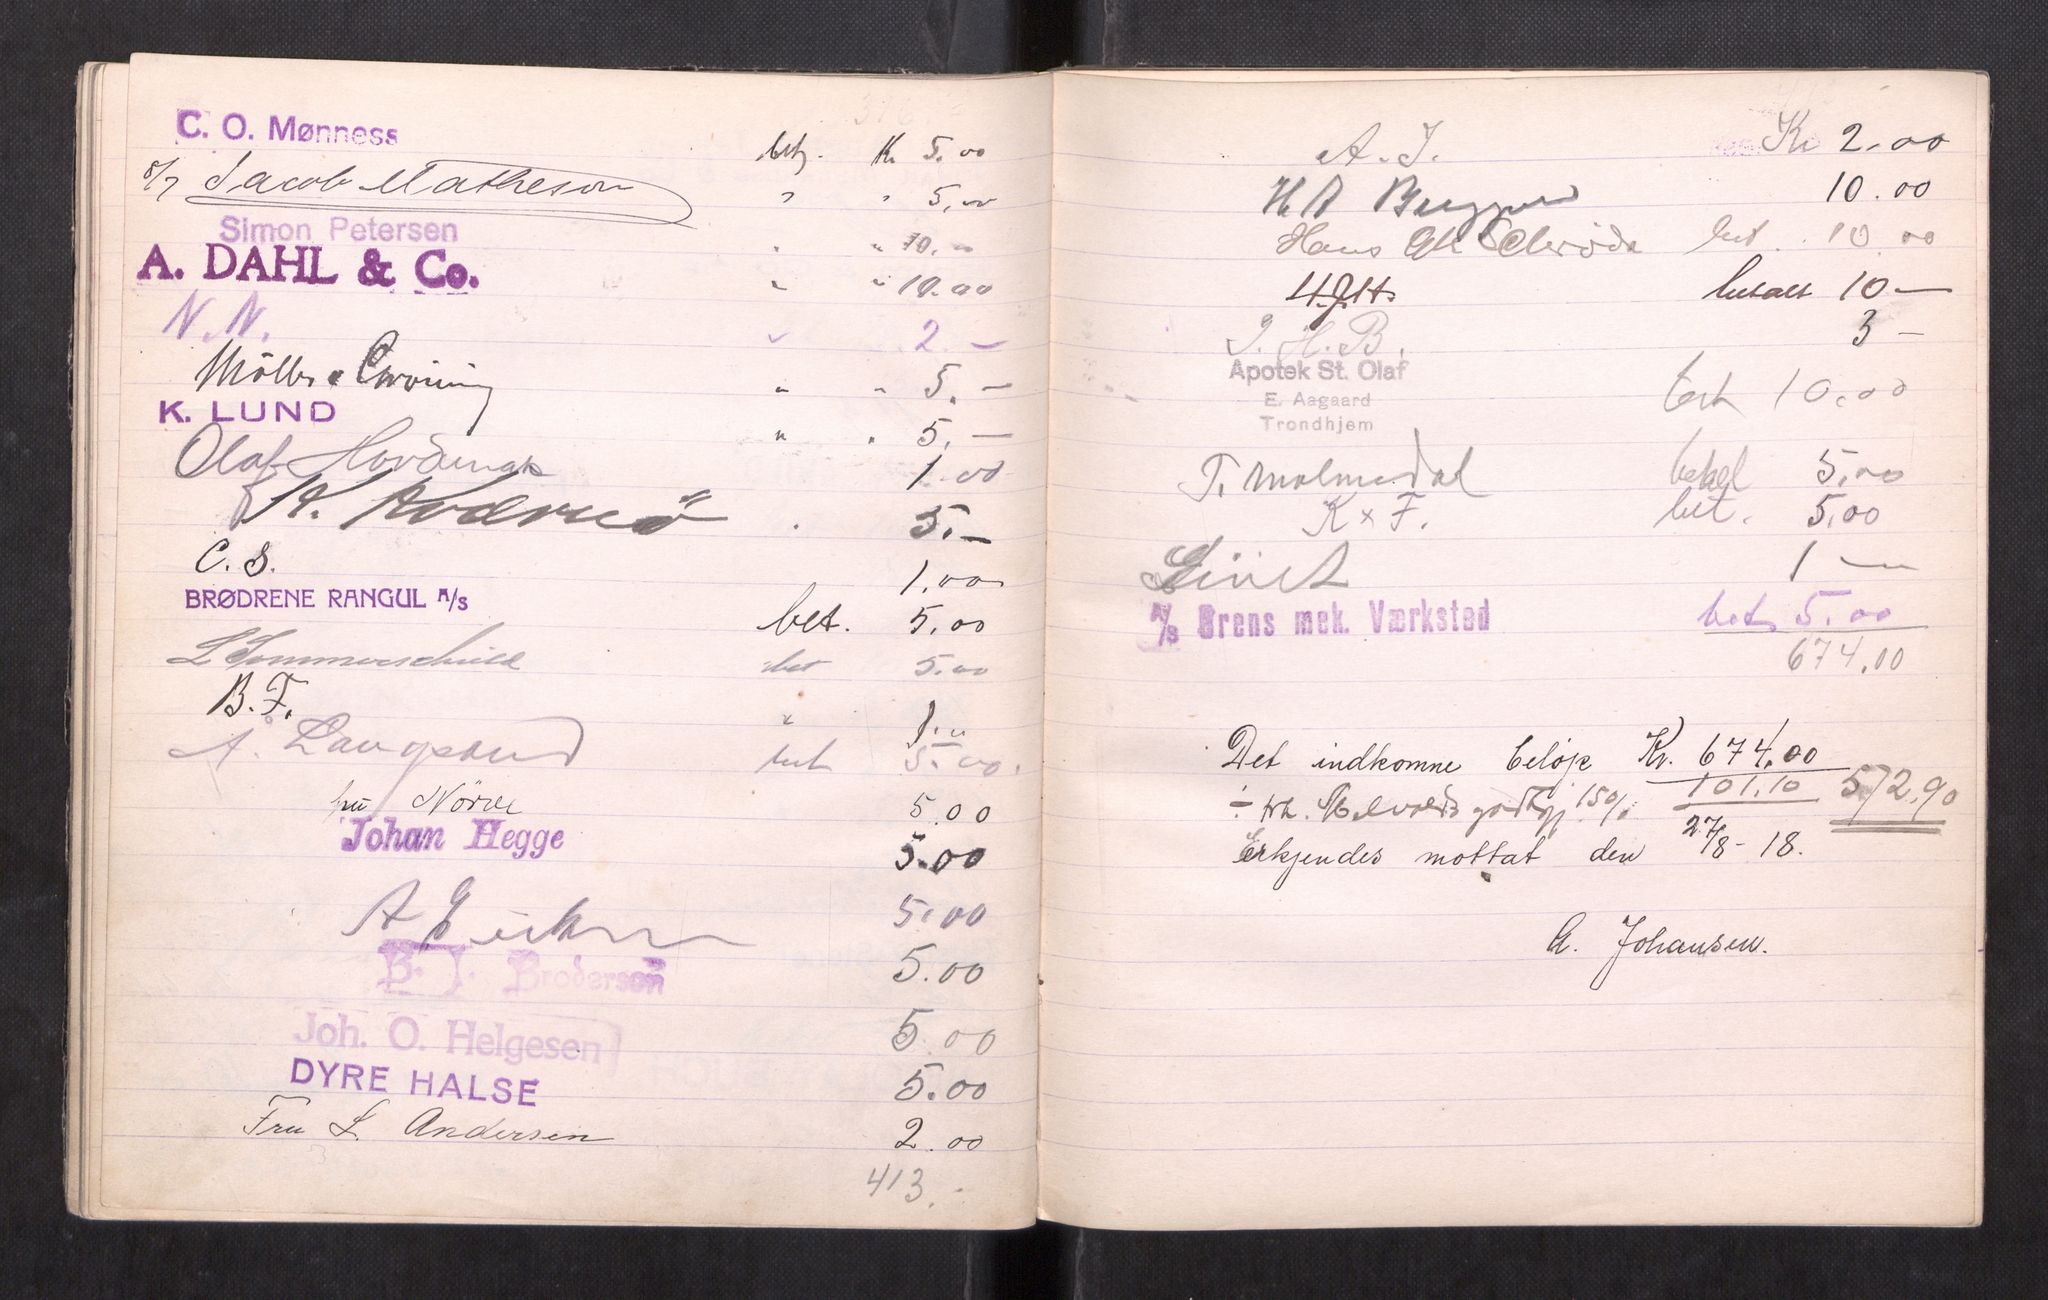 C. O. Mønness betz. Kr 5,00
8/7 Jacob Matheson " " 5,00
Simon Petersen " " 10.—
A. DAHL & Co. " " 10.00
N.N. " 2 —
Møller & " " 5.—
K. LUND " " 5,—
Olaf 1.00
A. 5.—
C. S. 1,00
BRØDRENE RANGUL A/S bet. 5,00
L Sommerschield bet 5.00
B.F. " 1.
A. Langsund bet 5.00.
fru Nörve 5.00
Johan Hegge 5.00
A 5.00
B. I. Brodersen 5.00
Joh. O. Helgesen 5.00
DYRE HALSE 5.00
Fru L. Andersen 2.00
413.-
A. J. Kr 2.00
H A 10.00
Hans Schrøder bet. 10 00
H.J.H. betalt 10—
J. H. B. 3 —
Apotek St. Olaf bet 10,00
E. Aagaard
Trondhjem
T. Malmedal betal 5,00
K x F. bet. 5,00
1 —
A/S Ørens mek. Værksted bet 5.00
674.00
Det indkomne beløp Kr. 674,00
÷ godtgj 15% 101,10 572,90
Erkjendes mottat den 27/8 - 18.
A. Johansen.